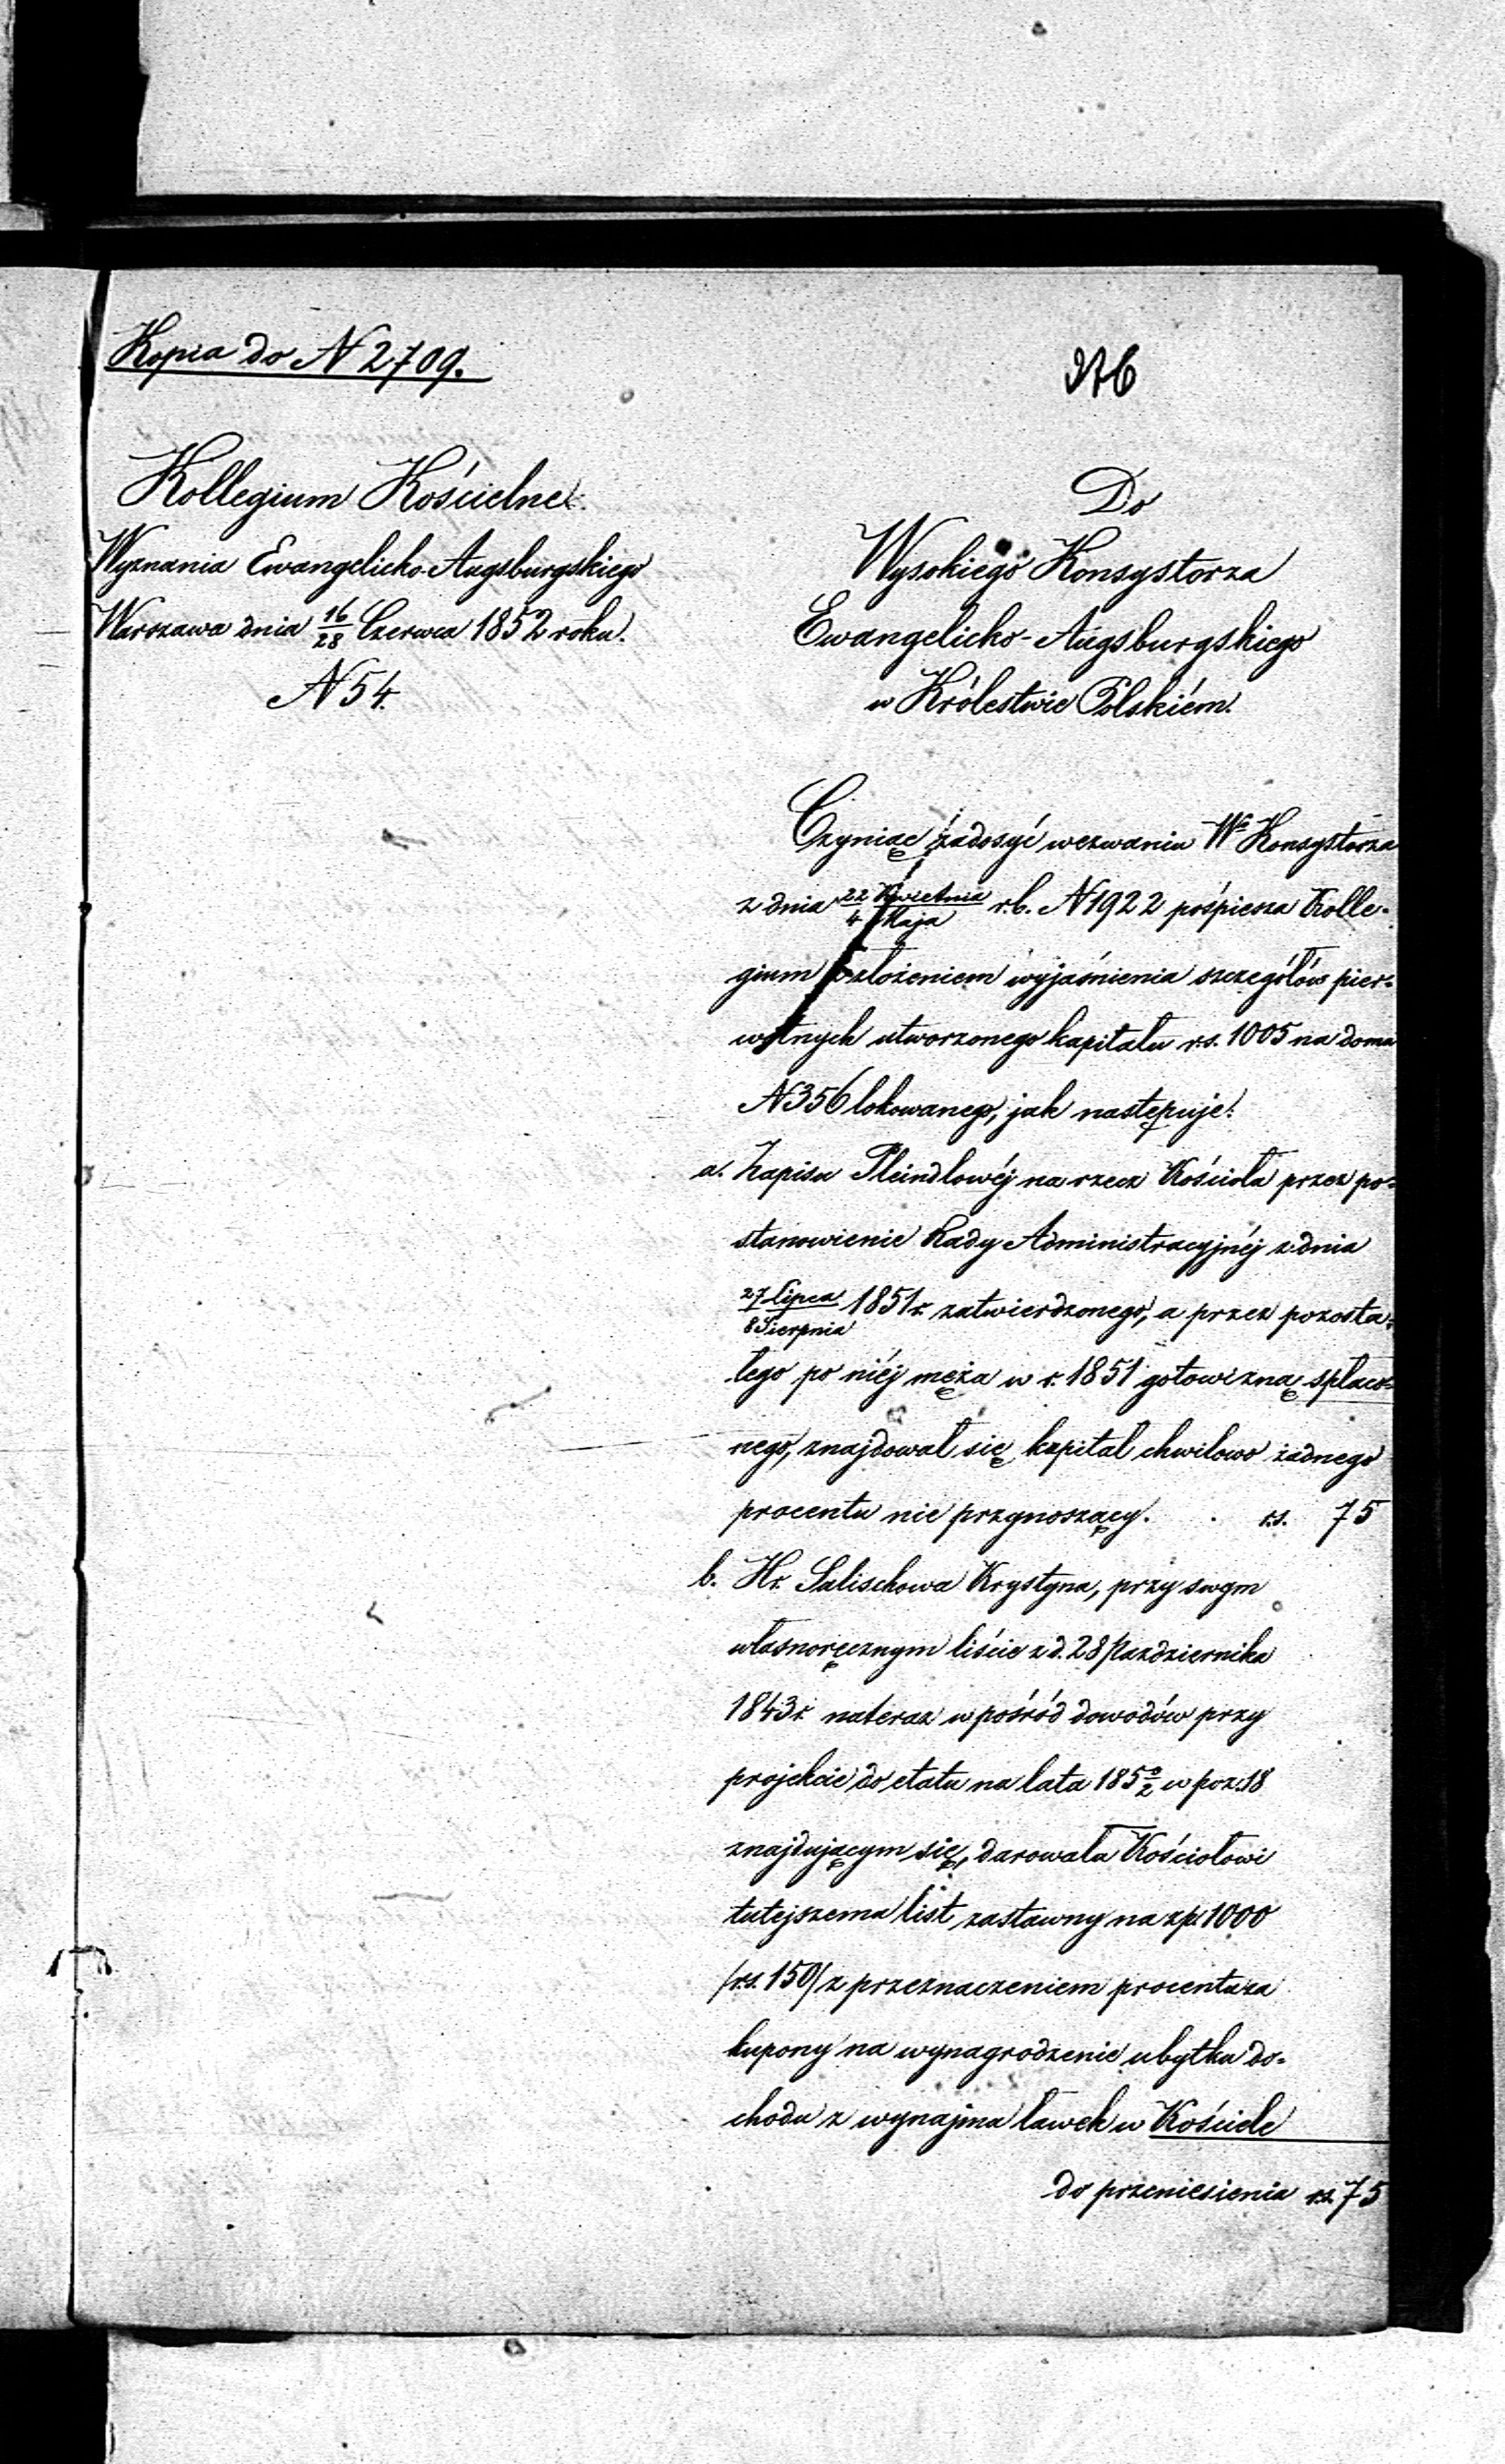 Kopia do N 2709.
376
Kollegium Kościelne
Wyznania Ewangelicko-Augsburgskiego
Warszawa dnia 16/28 Czerwca 1852 roku.
N 54.
Do
Wysokiego Konsystorza
Ewangelicko-Augsburgskiego
w Królestwie Polskiém.
Czyniąc zadosyć wezwaniu Wgo Konsystorza
z dnia 22 Kwietnia/4 Maja r.b. N 1922 pośpiesza Kolle-
gium z złożeniem wyjaśnienia szczegółów pier-
wotnych utworzonego kapitału r.s. 1005 na domu
N 356 lokowanego, jak następuje:
a. Zapisu Pleindlowéj na rzecz Kościoła przez po-
stanowienie Rady Administracyjnéj z dnia
27 Lipca/8 Sierpnia 1851 r. zatwierdzonego, a przez pozosta-
łego po niéj męża w r. 1851 gotowizną spłaco-
nego, znajdował się kapitał chwilowo żadnego
procentu nie przynoszący. . r.s. 75
b. Hr. Salischowa Krystyna, przy swym
własnoręcznym liście z d. 28 Października
1843 r. nateraz wpośród dowodów przy
projekcie do etatu na lata 185 0/2 w poz. 18
znajdującym się, darowała Kościołowi
tutejszemu list zastawny na zp. 1000
/r.s. 150/ z przeznaczeniem procentu za
kupony na wynagrodzenie ubytku do-
chodu z wynajmu ławek w Kościele
do przeniesienia r.s. 75